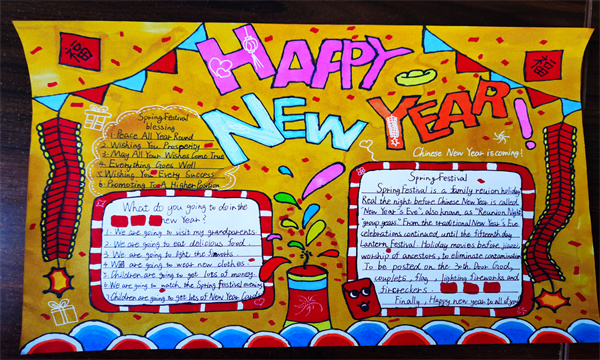 福
HAPPY
NEW YEAR!
福
Spring Festival
blessing
1. Peace All Year Round
2. Wishing You Prosperity
3. May All Your Wishes Come True
4. Everything Goes Well
5. Wishing You Every Success
6. Promoting To A Higher Position
Chinese New Year is coming!
What do you going to do in the
new Year?
1. We are going to visit my grandparents
2. We are going to eat delicious food
3. We are going to light the
4. We are going to wear new clothes
5. Children are going to get lots of money.
6. We are going to watch the Spring Festival evening
7. Children are going to get lots of New Year
Spring Festival
Spring Festival is a family reunion holiday
Real the night before Chinese New Year is called
"New Year's Eve", also known, as "Reunion Night,
group years." From the traditional New Year's Eve
celebrations continued until the fifteenth day
Lantern Festival. Holiday movies before,
worship of ancestors, to eliminate contamination
To be posted on the 30th Door God,
couplets, flag, lighting fireworks and
firecreckers.
Finally, Happy new year to all of you